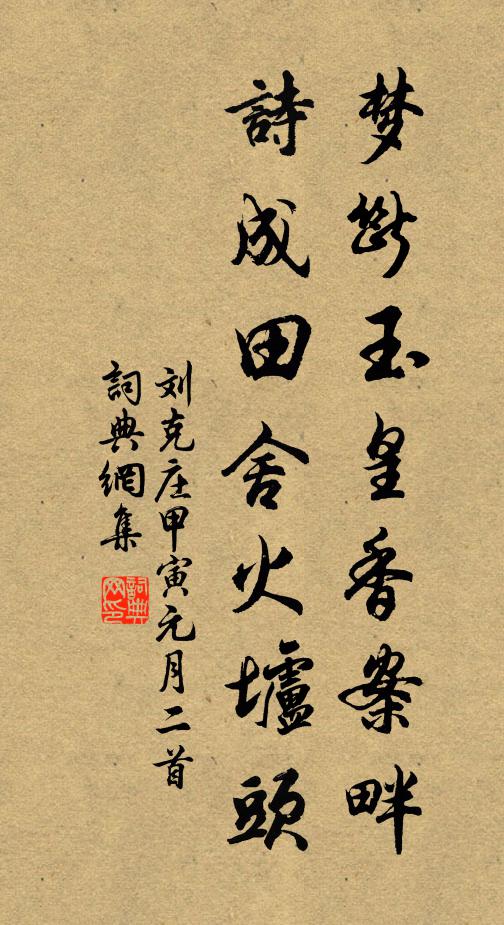 梦断玉皇香案畔
詩成田舍火壚頭
刘克庄甲寅元月二首
詞典網集
詞典网印